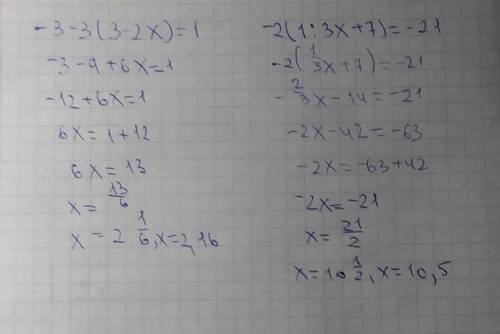 -3-3(3-2x)=1
-3-9+6x=1
-12+6x=1
6x=1+12
6x=13
x=13/6
x=2 1/6, x=2,16
-2(1:3x+7)=-21
-2(1/3x+7)=-21
-2/3x-14=-21
-2x-42=-63
-2x=-63+42
-2x=-21
x=21/2
x=10 1/2, x=10,5